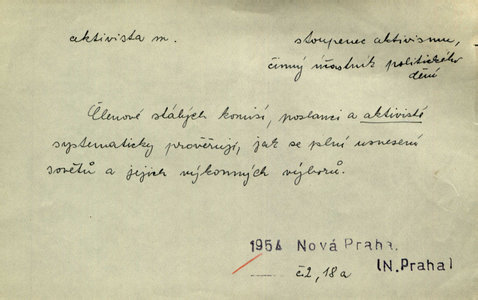 aktivista m.
stoupenec aktivismu,
činný účastník politického
dění
Členové stálých komisí, poslanci a aktivisté
systematicky prověřují, jak se plní usnesení
sovětů a jejich výkonných výborů.
1954 Nová Praha.
(N. Praha)
č. 2, 18a